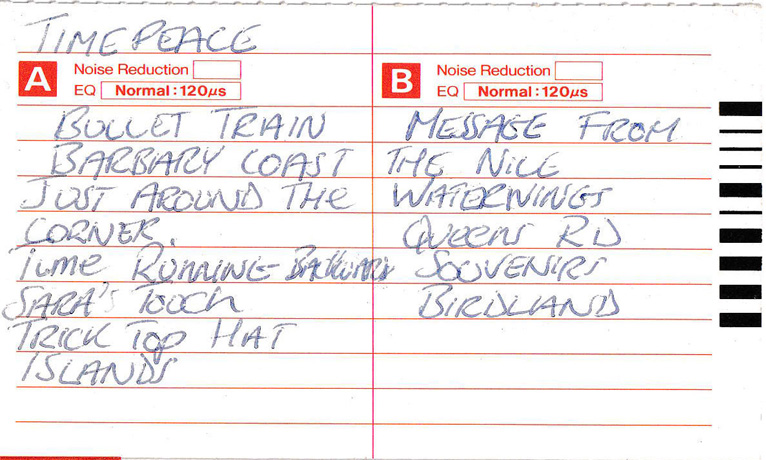 TIMEPEACE
A Noise Reduction
EQ Normal:120µs
BULLET TRAIN
BARBARY COAST
JUST AROUND THE
CORNER.
TIME RUNNING BACKWARDS
SARA'S TOUCH
TRICK TOP HAT
ISLANDS
B Noise Reduction
EQ Normal:120µs
MESSAGE FROM
THE NILE
WATERWINGS
QUEENS RD
SOUVENIRS
BIRDLAND